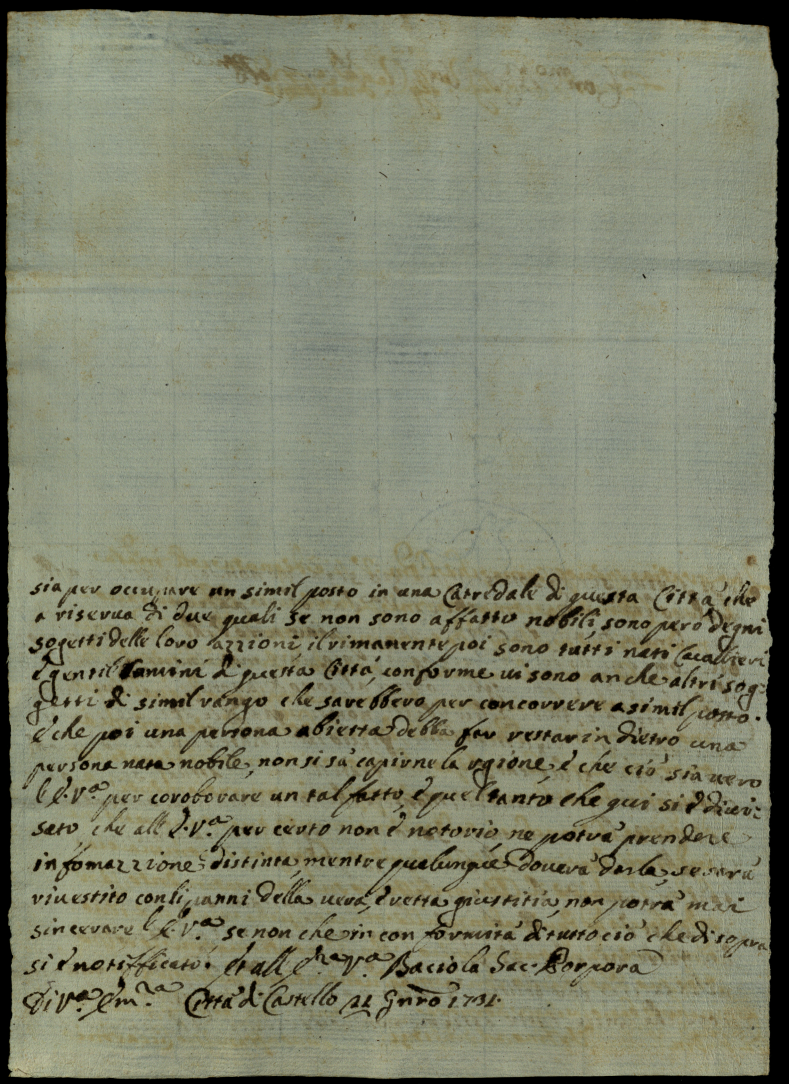 sia per occupare un simil posto in una Catredale di questa Città che
a riserva di due quali se non sono affatto nobili, sono però degni
sogetti delle loro azzioni, il rimanente poi sono tutti nati Cavallieri
è gentil'huomini di questa Città, conforme vi sono anche altri sog-
getti di simil rango che sarebbero per concorrere a simil posto.
è che poi una persona abietta debba far restar in dietro una
persona nata nobile, non si sà capirne la rgione, è che ciò sia vero
l'E. Vª per coroborare un tal fatto, è quel tanto che qui si è divi-
sato che all'E. Vª per certo non è notorio, ne potrà prendere
infomazzione distinta, mentre qualunque doverà darla, se sarà
rivestito con li panni della vera, è retta giustitia, non potrà mai
sincerare l'E. Vª se non che in conformità di tutto ciò che di sopra
si è notifficato. Et all' Vª Bacio la Sac. Porpora
Di Vª Città di Castello 1731.